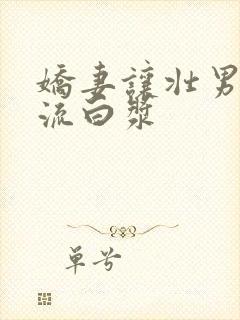 嬌妻讓壯男
流白漿
单兮